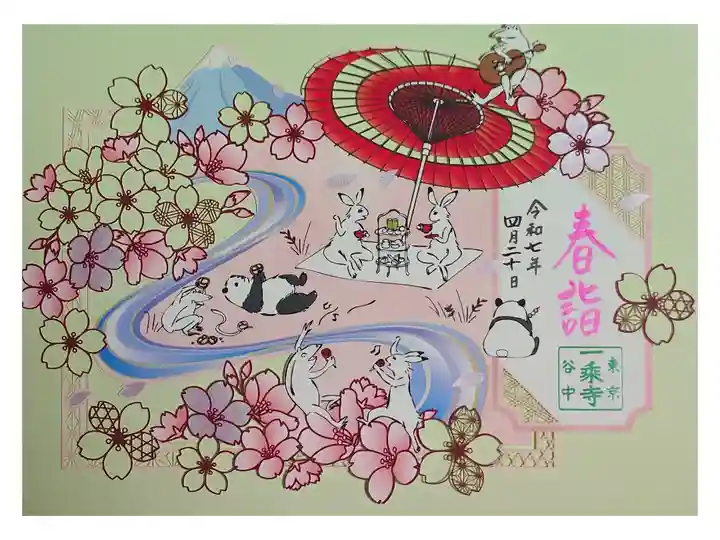 春詣
令和七年
四月二十日
東京
一乘寺
谷中